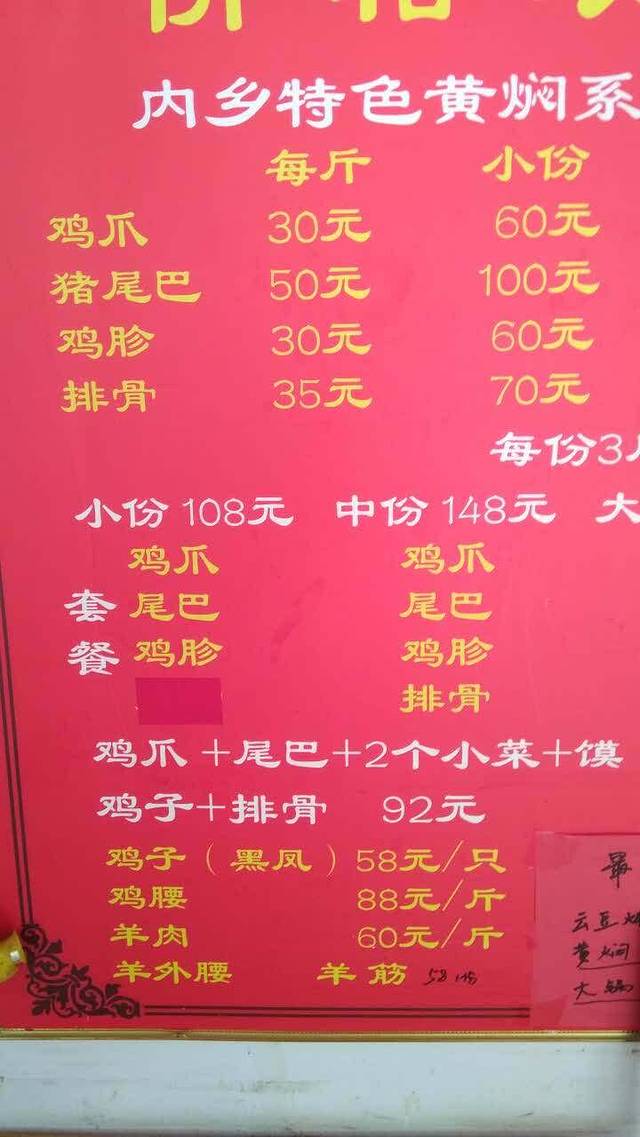 价格
内乡特色黄焖系
每斤 小份
鸡爪 30元 60元
猪尾巴 50元 100元
鸡胗 30元 60元
排骨 35元 70元
每份3斤
小份 108元 中份 148元 大
套餐
鸡爪 鸡爪
尾巴 尾巴
鸡胗 鸡胗
排骨
鸡爪+尾巴+2个小菜+馍
鸡子+排骨 92元
鸡子(黑凤)58元/只
鸡腰 88元/斤
羊肉 60元/斤
羊外腰 羊筋 58
云豆
黄焖
大锅